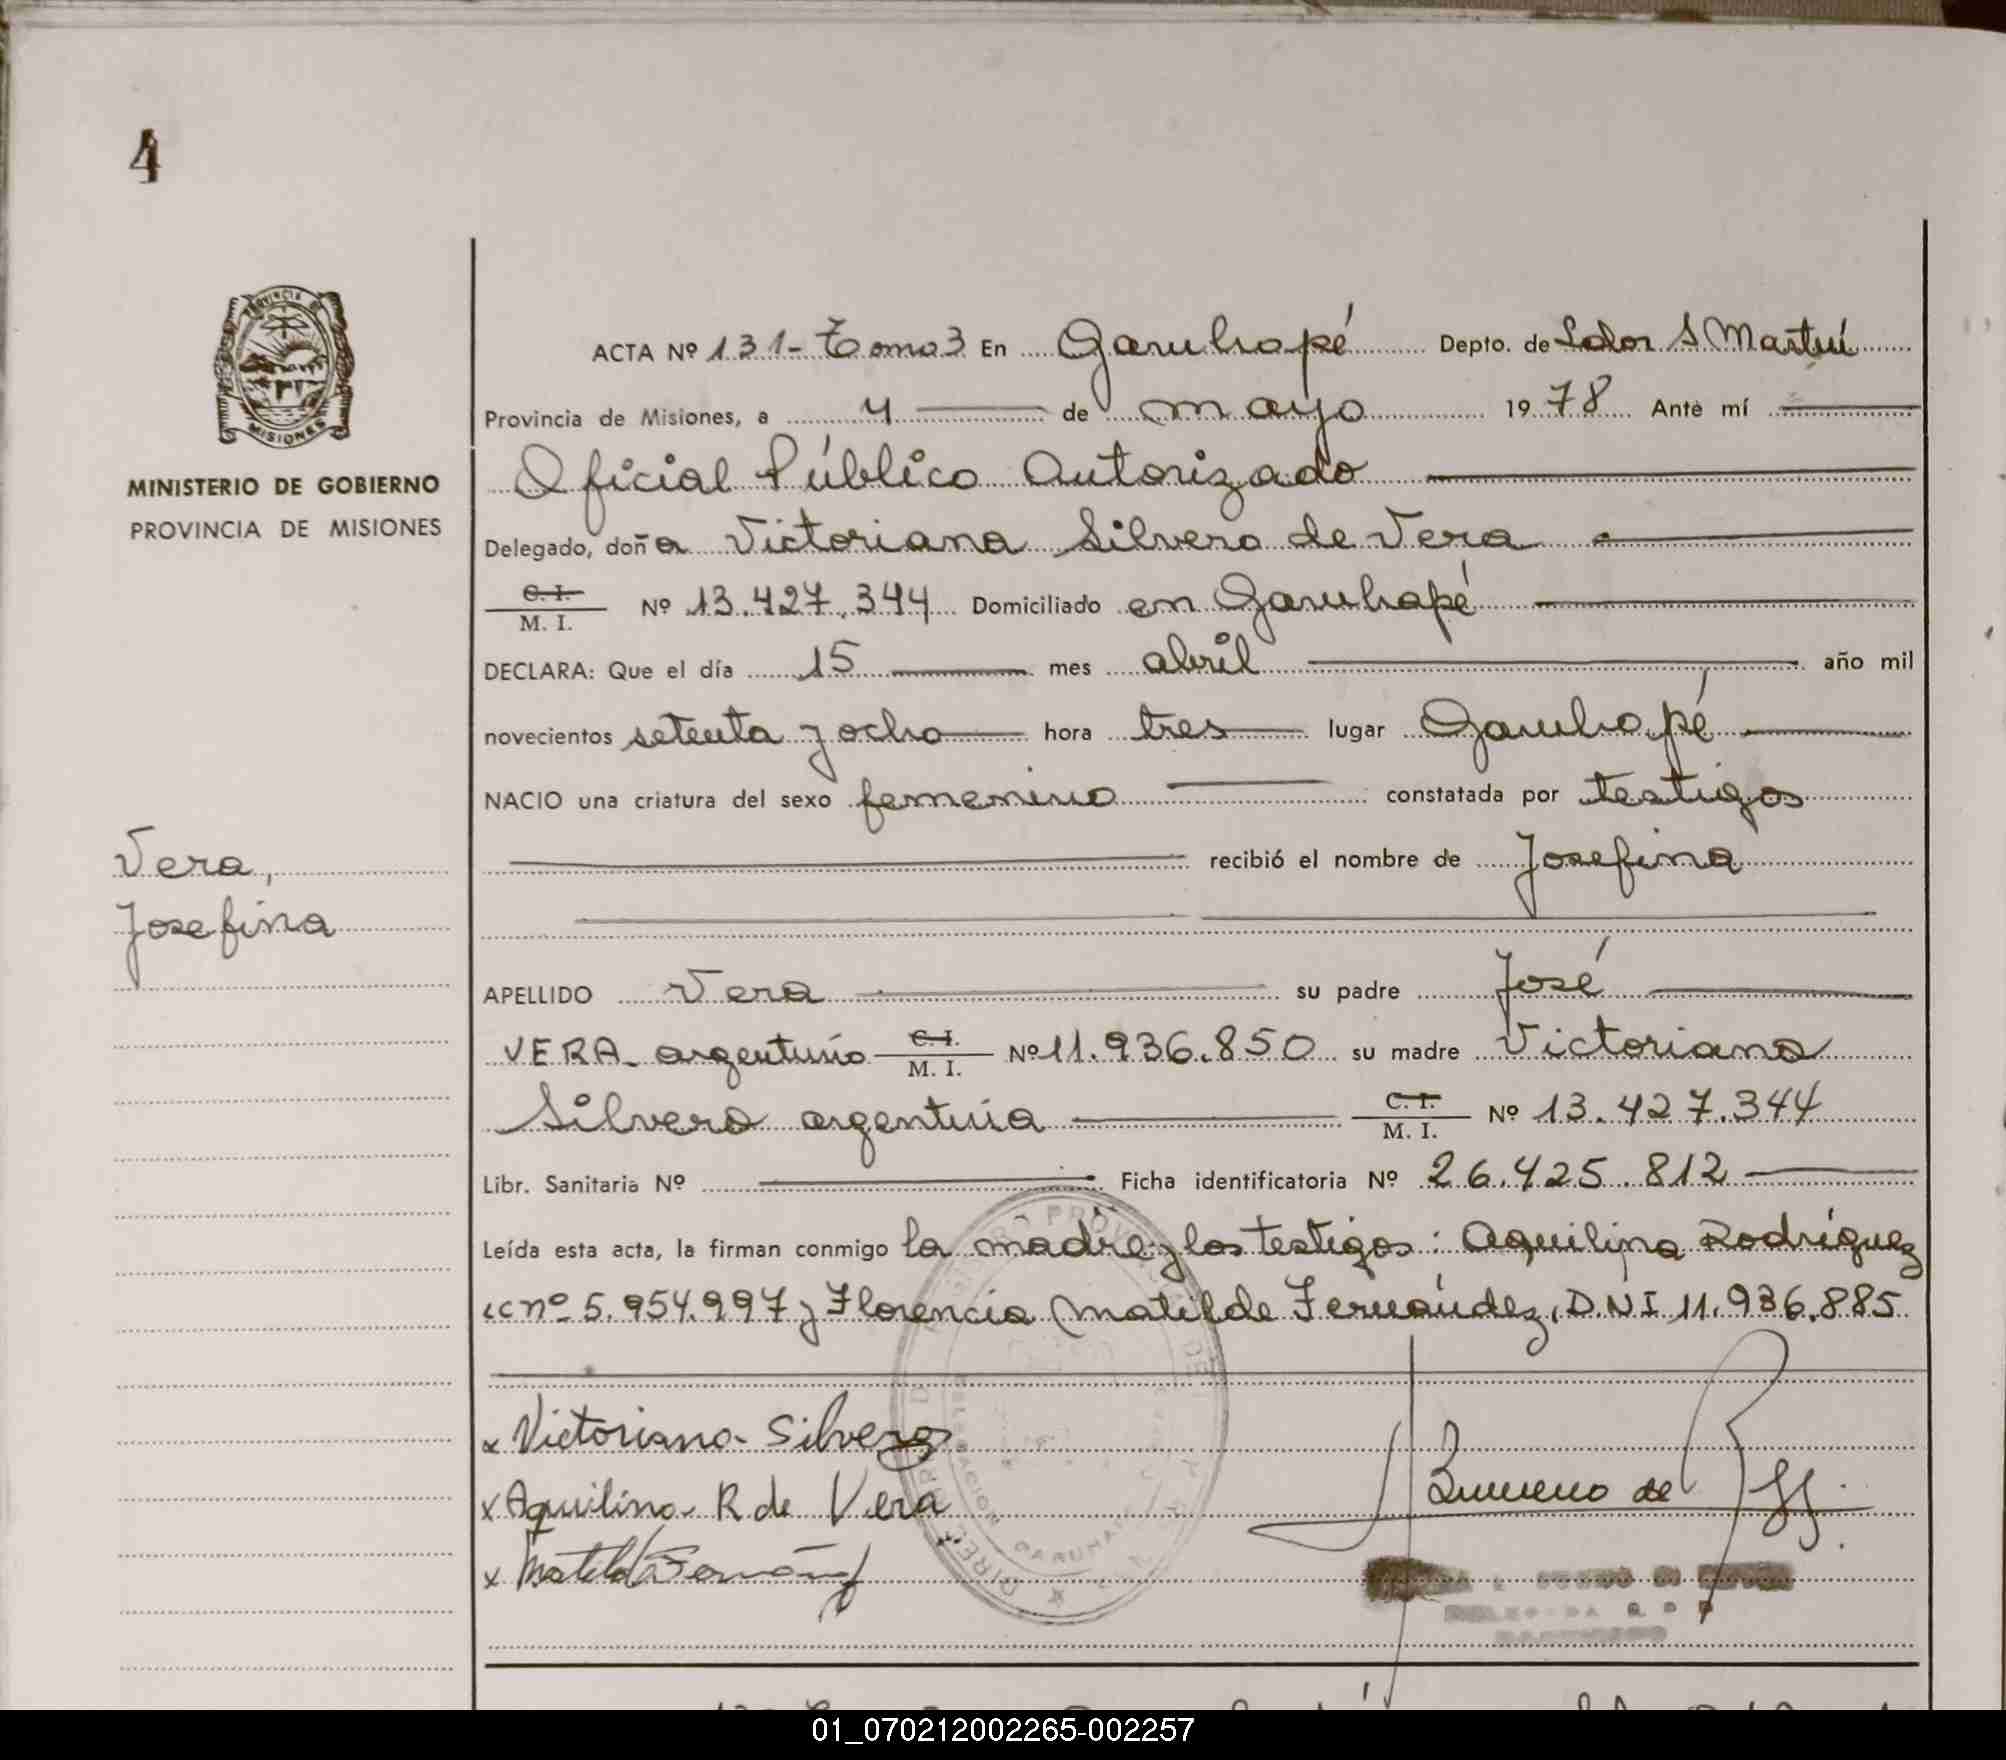 4
PROVINCIA DE
MISIONES
MINISTERIO DE GOBIERNO
PROVINCIA DE MISIONES
Vera,
Josefina
ACTA Nº 131- Tomo 3 En Garuhapé Depto. de Ldor S Martín
Provincia de Misiones, a 4 de mayo 1978 Ante mí
Oficial Público Autorizado
Delegado, doña Victoriana Silvero de Vera
C. I.
M. I. Nº 13.427.344 Domiciliado en Garuhapé
DECLARA: Que el día 15 mes abril año mil
novecientos setenta y ocho hora tres lugar Garuhapé
NACIO una criatura del sexo femenino constatada por testigos
recibió el nombre de Josefina
APELLIDO Vera su padre José
VERA- argentino C. I. M. I. Nº 11.936.850 su madre Victoriana
Silvero argentina C. I. M. I. Nº 13.427.344
Libr. Sanitaria Nº Ficha identificatoria Nº 26.425.812
Leída esta acta, la firman conmigo la madre y los testigos: Aquilina Rodríguez
LC nº 5.954.997 y Florencia Matilde Fernández, D.N.I 11.936.885
x Victoriana Silvero
x Aquilina R de Vera
x Matilde Fernández
DELEGACION GARUHAPE
01_070212002265-002257